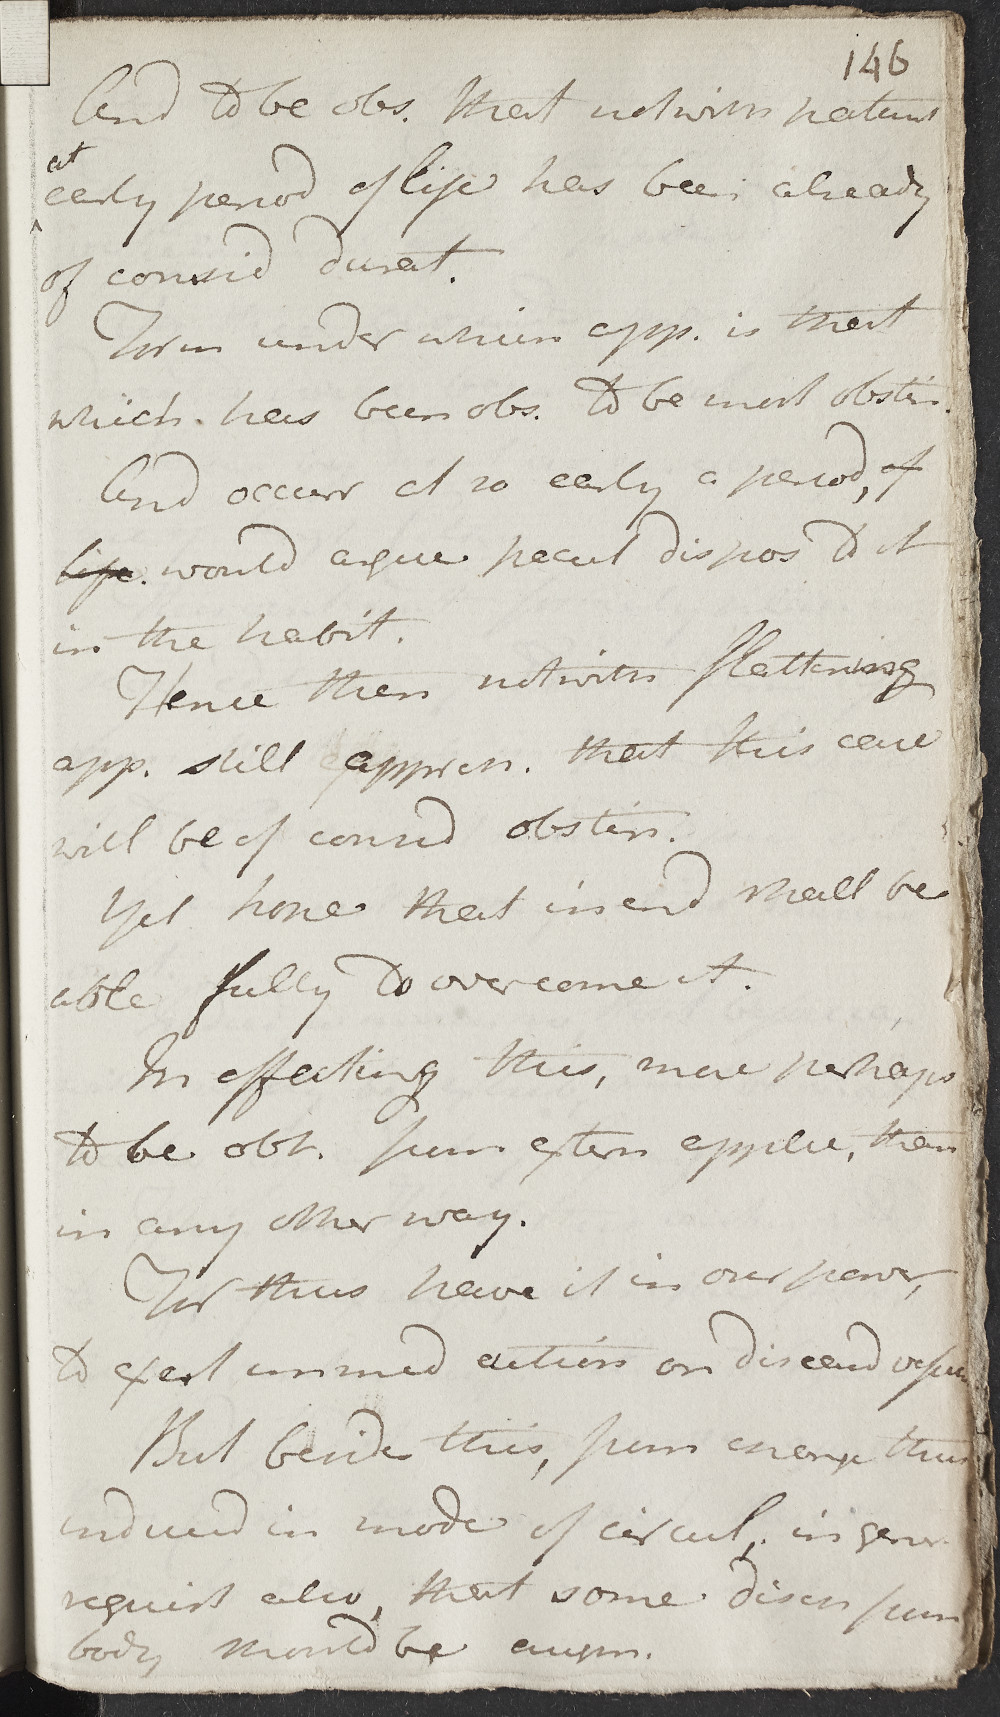 146
And to be obs. that notwith naturl
at
early period of life has been already
of consid durat.
Form under which app. is that
which has been obs. to be most obstin.
And occurr at so early a period, of
life. would argue pecul dispos to it
in the habit.
Hence then notwith flattering
app. still appreh. that this case
will be of consid obstin.
Yet hope that in end shall be
able fully to overcome it.
In effecting this, more perhaps
to be obt. from extern applic, than
in any other way.
For thus have it in our power,
to exert immed action on diseasd vessels
But beside this, from change thus
induced in mode of circul, in gener
requisit also, that some disch from
body should be augm.